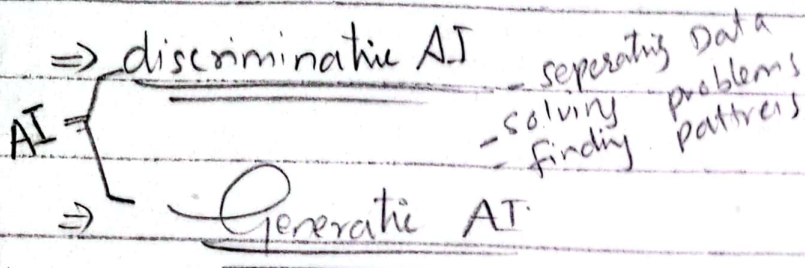 ⇒ discriminative AI
- seperating Data
- solving problems
- finding pattres
AI
⇒ Generative AI